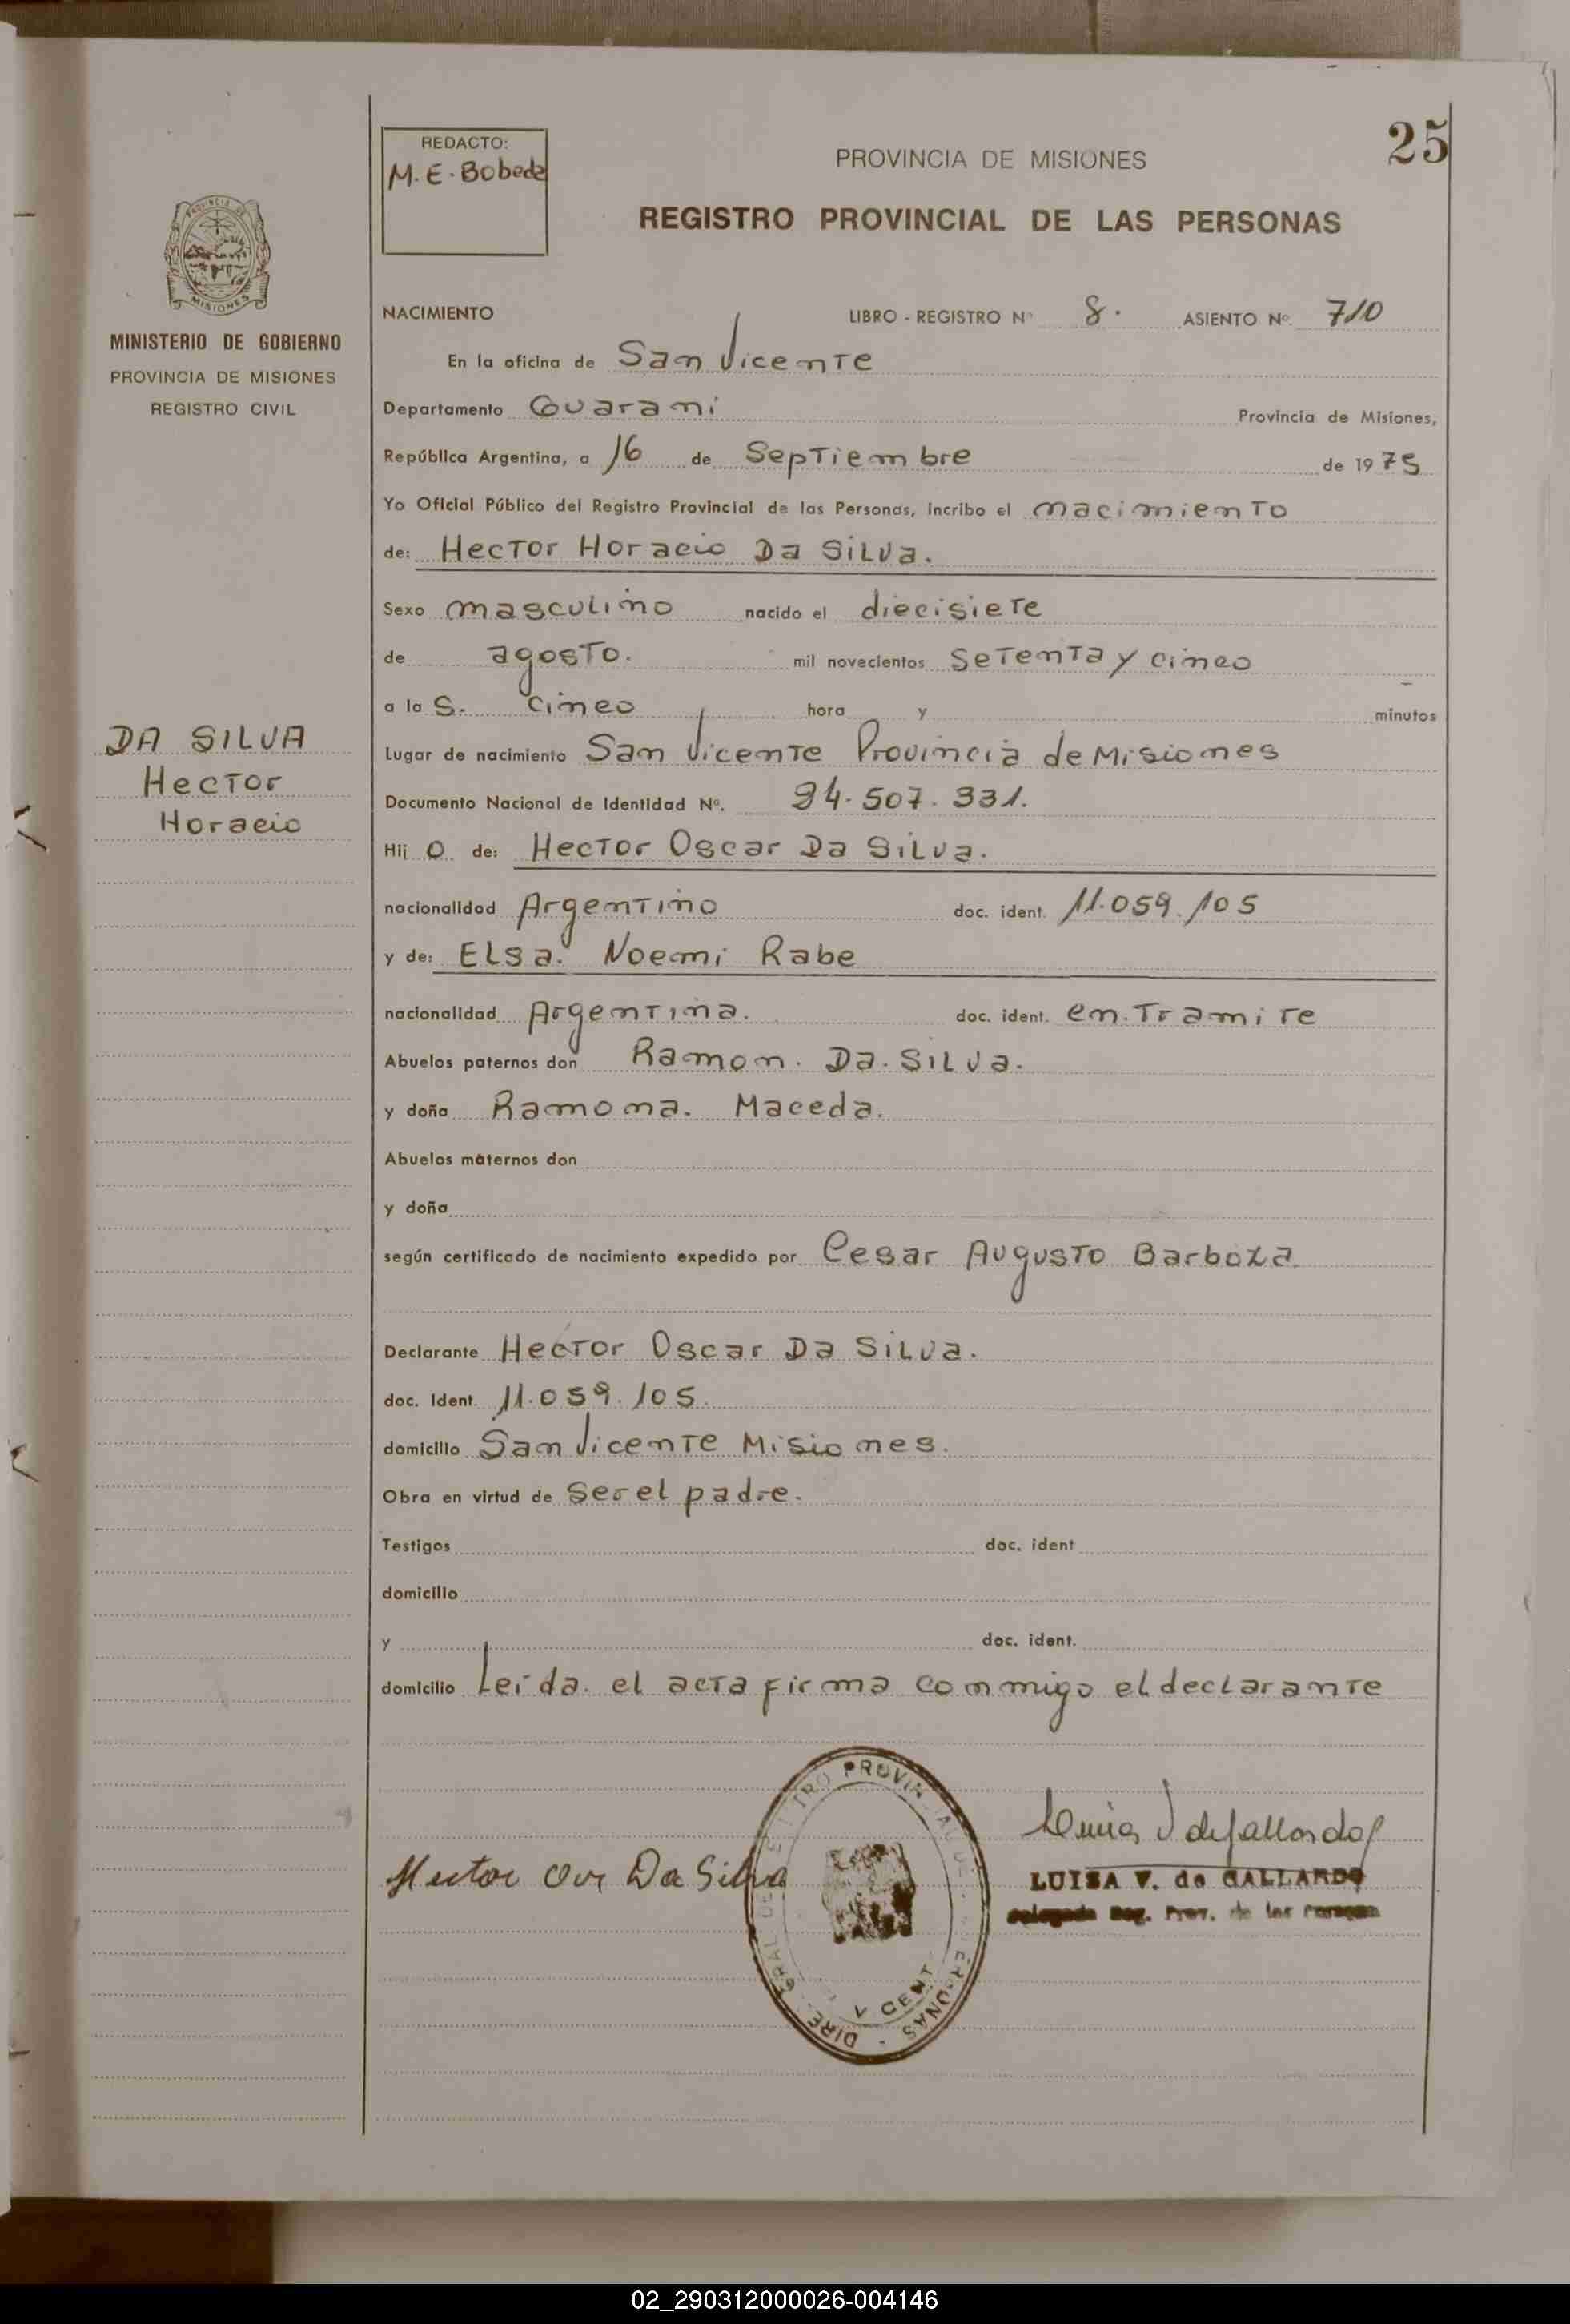 25
REDACTO:
M. E. Bobeda
PROVINCIA DE MISIONES
REGISTRO PROVINCIAL DE LAS PERSONAS
PROVINCIA DE
MISIONES
MINISTERIO DE GOBIERNO
PROVINCIA DE MISIONES
REGISTRO CIVIL
DA SILVA
Hector
Horacio
NACIMIENTO LIBRO - REGISTRO Nº 8. ASIENTO Nº 710
En la oficina de San Vicente
Departamento Guarani Provincia de Misiones,
República Argentina, a 16 de Septiembre de 1975
Yo Oficial Público del Registro Provincial de las Personas, incribo el nacimiento
de: Hector Horacio Da Silva.
Sexo masculino nacido el diecisiete
de agosto. mil novecientos setenta y cinco
a la s. cinco hora y minutos
Lugar de nacimiento San Vicente Provincia de Misiones
Documento Nacional de Identidad Nº. 24.507.331.
Hij o de: Hector Oscar Da Silva.
nacionalidad Argentino doc. ident. 11.059.105
y de: Elsa. Noemi Rabe
nacionalidad Argentina. doc. ident. en. Tramite
Abuelos paternos don Ramon. Da. Silva.
y doña Ramona. Maceda.
Abuelos maternos don
y doña
según certificado de nacimiento expedido por Cesar Augusto Barboza
Declarante Hector Oscar Da Silva.
doc. Ident. 11.059.105.
domicilio San Vicente Misiones.
Obra en virtud de ser el padre.
Testigos doc. ident
domicilio
y doc. ident.
domicilio Leida. el acta firma conmigo el declarante
Hector Da Silva
LUISA V. de GALLARDO
Delegada Reg. Prov. de las Personas
02_290312000026-004146